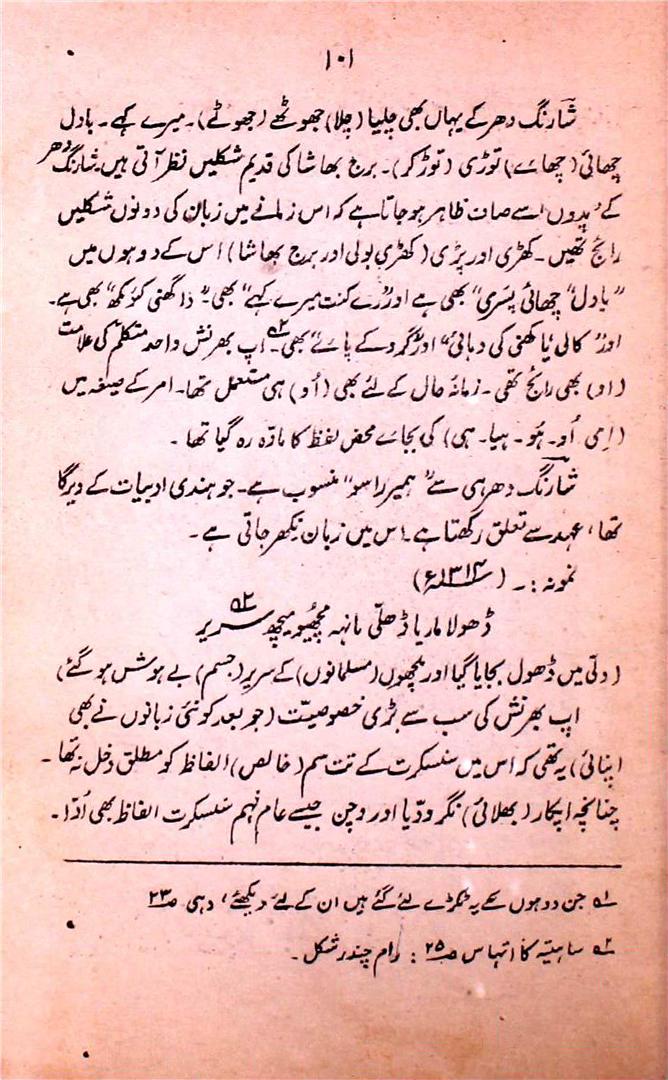 ۱۰۱
شارنگ دھر کے یہاں بھی چلیا (چلا) جھوٹھے (جھوٹے)۔ میرے کہے۔ بادل
چھائی (چھائے) توڑی (توڑ کر)۔ برج بھاشا کی قدیم شکلیں نظر آتی ہیں۔ شارنگ دھر
کے پدوں سے صاف ظاہر ہو جاتا ہے کہ اس زمانے میں زبان کی دونوں شکلیں
رائج تھیں۔ کھڑی اور پڑی (کھڑی بولی اور برج بھاشا) اس کے دوہوں میں
"بادل" چھائی پسری" بھی ہے اور "رے کنت میرے کہے" بھی۔ گھنی بھی ہے۔
اور کالی کی دہائی" اور "گرو کے پائے" بھی۔ اپ بھرنش واحد متکلم کی علامت
(او) بھی رائج تھی۔ زمانۂ حال کے لئے بھی (اُو) ہی مستعمل تھا۔ امر کے صیغہ میں
(اِمی۔ اُو۔ ہُو۔ ہیا۔ ہی) کی بجائے محض لفظ کا مادّہ رہ گیا تھا۔
شارنگ دھر ہی سے "ہمیر راسو" منسوب ہے۔ جو ہندی ادبیات کے ویرگا
تھا، عہد سے تعلق رکھتا ہے۔ اس میں زبان نکھر جاتی ہے۔
نمونہ:۔ (۱۳۱۴ء)
ڈھولا ماریا ڈھلّی مانہہ مچھیو میچھ سریر ۵۲
(دلّی میں ڈھول بجایا گیا اور ملچھوں (مسلمانوں) کے سریر (جسم) بے ہوش ہو گئے)
اپ بھرنش کی سب سے بڑی خصوصیّت (جو بعد کو نئی زبانوں نے بھی
اپنائی) یہ تھی کہ اس میں سنسکرت کے تت سم (خالص) الفاظ کو مطلق دخل نہ تھا۔
چنانچہ اپکار (بھلائی) نگر ودّیا اور وچن جیسے عام فہم سنسکرت الفاظ بھی اُوّا۔
۵۱ جن دوہوں کے یہ ٹکڑے لئے گئے ہیں ان کے لئے دیکھئے، وہی ص۲۳
۵۲ ساہتیہ کا اتہاس ص۲۵: رام چندر شکل۔